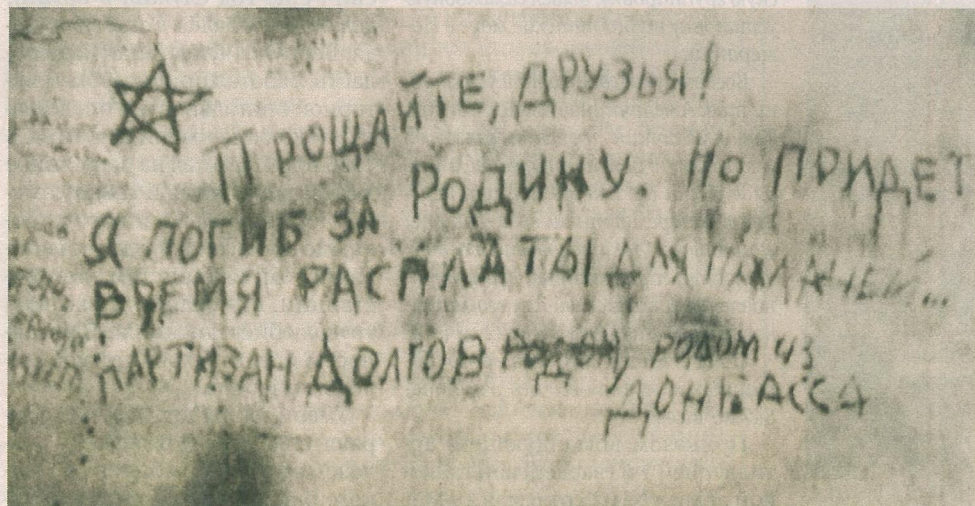 Прощайте, друзья!
Я погиб за Родину. Но придет
время расплаты для палачей...
партизан Долгов, родом из
Донбасса